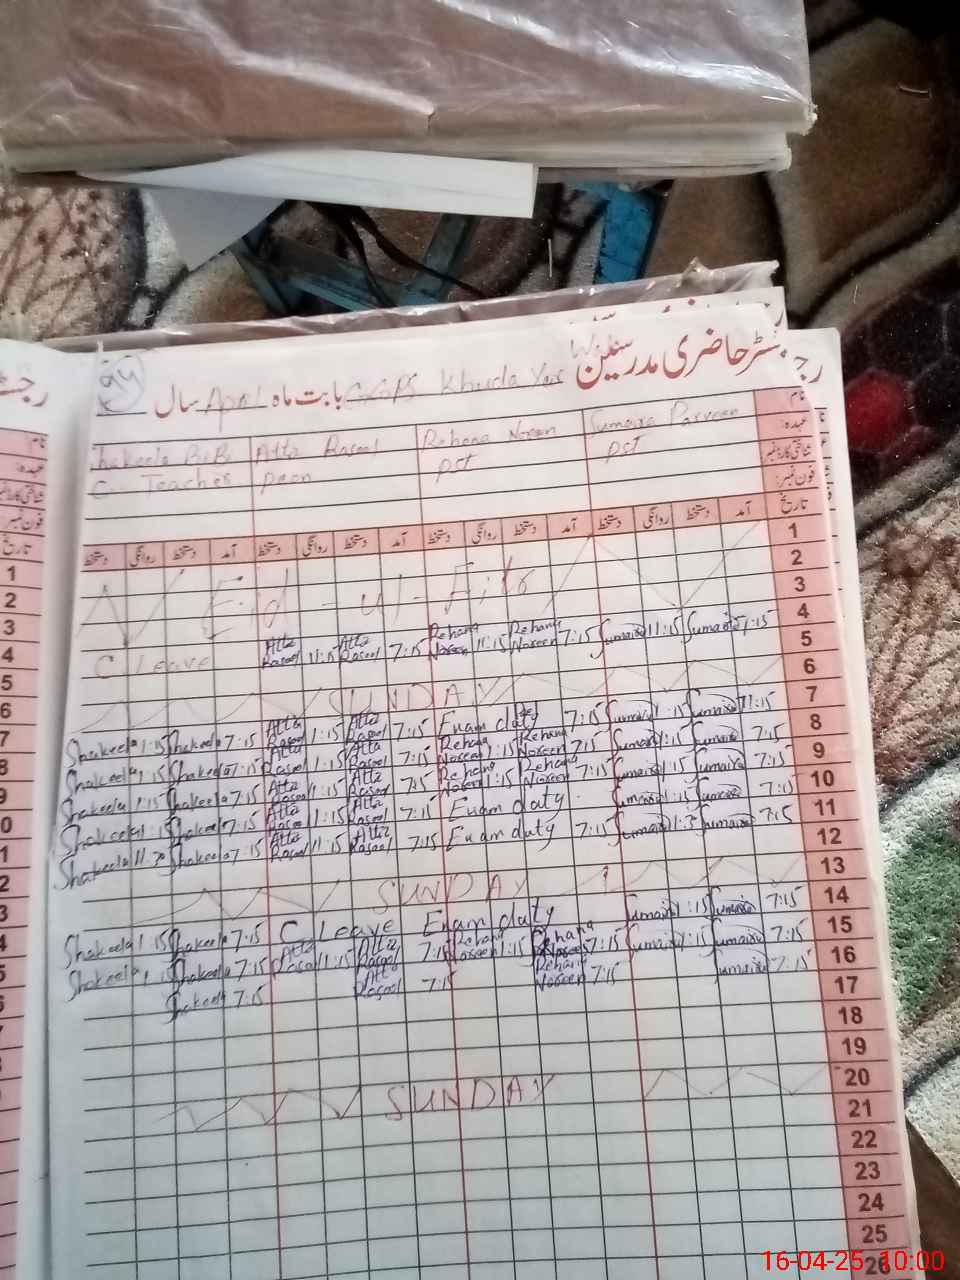 رجسٹر حاضری مدرسین
بابت ماہ April سال GGPS Khuda Yar
نام
Shakeela BiBi Atta Rasool Rehana Noreen Sumaira Parveen
عہدہ:
C.. Teacher Peon PST PST
شناختی کارڈ نمبر
فون نمبر:
تاریخ آمد دستخط روانگی دستخط آمد دستخط روانگی دستخط آمد دستخط روانگی دستخط آمد دستخط روانگی دستخط
1
2
Eid - ul - Fitr
3
4
C Leave Atta Rasool 11:15 Atta Rasool 7:15 Rehana Noreen 11:15 Rehana Noreen 7:15 Sumaira 11:15 Sumaira 7:15
5
6
SUNDAY
7
Shakeela 1:15 Shakeela 7:15 Atta Rasool 1:15 Atta Rasool 7:15 Exam duty 7:15 Sumaira 1:15 Sumaira
8
Shakeela 1:15 Shakeela 7:15 Atta Rasool 1:15 Atta Rasool 7:15 Rehana Noreen 1:15 Rehana Noreen 7:15 Sumaira 1:15 Sumaira 7:15
9
Shakeela 1:15 Shakeela 7:15 Atta Rasool 1:15 Atta Rasool 7:15 Rehana Noreen 1:15 Rehana Noreen 7:15 Sumaira 1:15 Sumaira 7:15
10
Shakeela 1:15 Shakeela 7:15 Atta Rasool 1:15 Atta Rasool 7:15 Exam duty Sumaira 1:15 Sumaira 7:15
11
Shakeela 11:30 Shakeela 7:15 Atta Rasool 11:15 Atta Rasool 7:15 Exam duty 7:15 Sumaira Sumaira 7:15
12
13
SUNDAY
14
Shakeela 1:15 Shakeela 7:15 C Leave Exam duty Sumaira 1:15 Sumaira 7:15
15
Shakeela 1:15 Shakeela 7:15 Atta Rasool 1:15 Atta Rasool 7:15 Rehana Noreen 1:15 Rehana Noreen 7:15 Sumaira 1:15 Sumaira 7:15
16
Shakeela 7:15 Atta Rasool 7:15 Rehana Noreen 7:15 Sumaira 7:15
17
18
19
20
SUNDAY
21
22
23
24
25
26
16-04-25 10:00